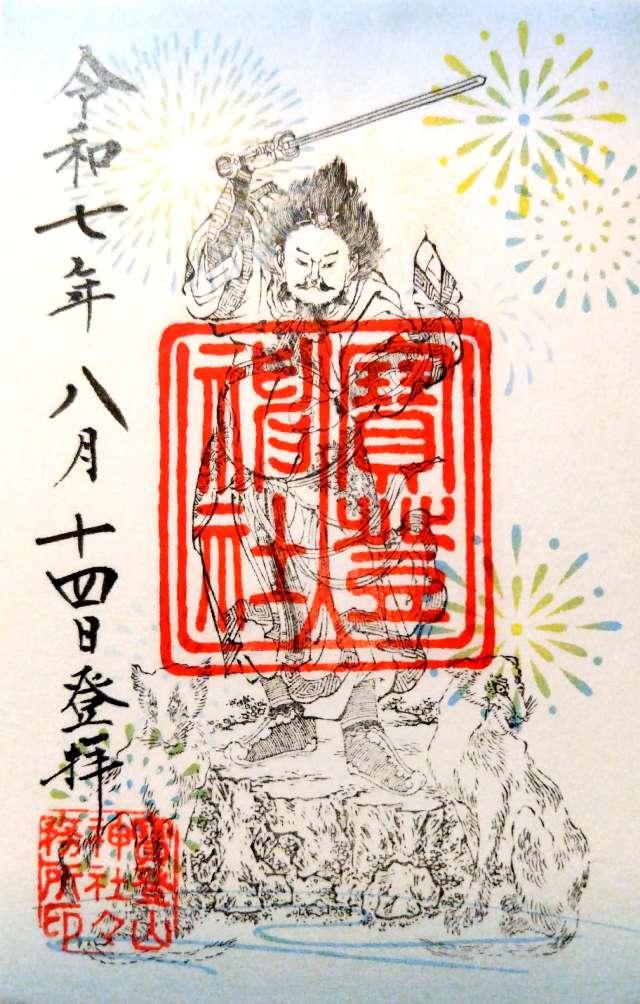 寶登
神社
令和七年八月十四日登拝
寶登山
神社々
務所印